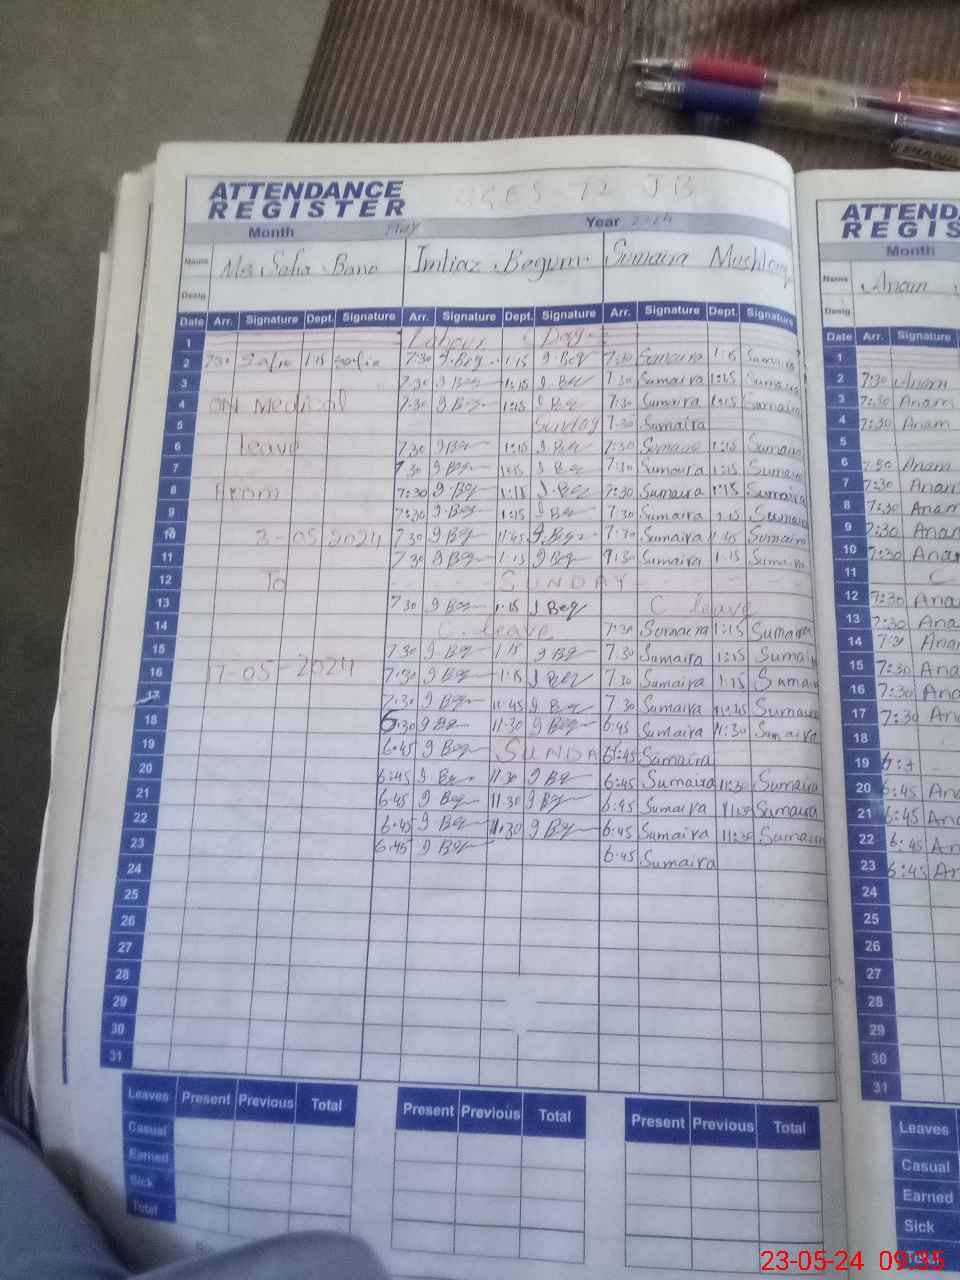 ATTENDANCE
REGISTER
GGES 72 JB
Month May Year 2024
Name Mrs Safia Bano Imtiaz Begum Sumaira Mushtaq
Desig
Date Arr. Signature Dept. Signature Arr. Signature Dept. Signature Arr. Signature Dept. Signature
1 Labour Day
2 7:30 Safia 1:15 Safia 7:30 I.Beg 1:15 I.Beg 7:30 Sumaira 1:15 Sumaira
3 7:30 I Beg 1:15 I Beg 7:30 Sumaira 1:15 Sumaira
4 ON Medical 7:30 I Beg 1:15 I Beg 7:30 Sumaira 1:15 Sumaira
5 Sunday 7:30 Sumaira
6 leave 7:30 I Beg 1:15 I Beg 7:30 Sumaira 1:15 Sumaira
7 7:30 I Beg 1:15 I Beg 7:30 Sumaira 1:15 Sumaira
8 From 7:30 I.Beg 1:15 I.Beg 7:30 Sumaira 1:15 Sumaira
9 7:30 I Beg 1:15 I Beg 7:30 Sumaira 1:15 Sumaira
10 3-05 2024 7:30 I Beg 11:45 I.Beg 7:30 Sumaira 11:45 Sumaira
11 7:30 I Beg 1:15 I Beg 7:30 Sumaira 1:15 Sumaira
12 To SUNDAY
13 7:30 I Beg 1:15 I Beg C leave
14 C. leave 7:30 Sumaira 1:15 Sumaira
15 7:30 I Beg 1:15 I Beg 7:30 Sumaira 1:15 Sumaira
16 17-05-2024 7:30 I Beg 1:15 I Beg 7:30 Sumaira 1:15 Sumaira
17 7:30 I Beg 11:45 I Beg 7:30 Sumaira 11:45 Sumaira
18 6:30 I Beg 11:30 I Beg 6:45 Sumaira 11:30 Sumaira
19 6:45 I Beg SUNDA 6:45 Sumaira
20 6:45 I Beg 11:30 I Beg 6:45 Sumaira 11:30 Sumaira
21 6:45 I Beg 11:30 I Beg 6:45 Sumaira 11:30 Sumaira
22 6:45 I Beg 11:30 I Beg 6:45 Sumaira 11:30 Sumaira
23 6:45 I Beg 6:45 Sumaira
24
25
26
27
28
29
30
31
Leaves Present Previous Total Present Previous Total Present Previous Total
Casual
Earned
Sick
Total
ATTENDA
REGIS
Month
Name Anam
Desig
Date Arr. Signature
1
2 7:30 Anam
3 7:30 Anam
4 7:30 Anam
5
6 7:30 Anam
7 7:30 Anam
8 7:30 Anam
9 7:30 Anam
10 7:30 Ana
11 C
12 7:30 Ana
13 7:30 Anam
14 7:30 Anam
15 7:30 Anam
16 7:30 Ana
17 7:30 An
18
19 6:
20 6:45 An
21 6:45 An
22 6:45 An
23 6:45 An
24
25
26
27
28
29
30
31
Leaves
Casual
Earned
Sick
PIANO
23-05-24 09:35